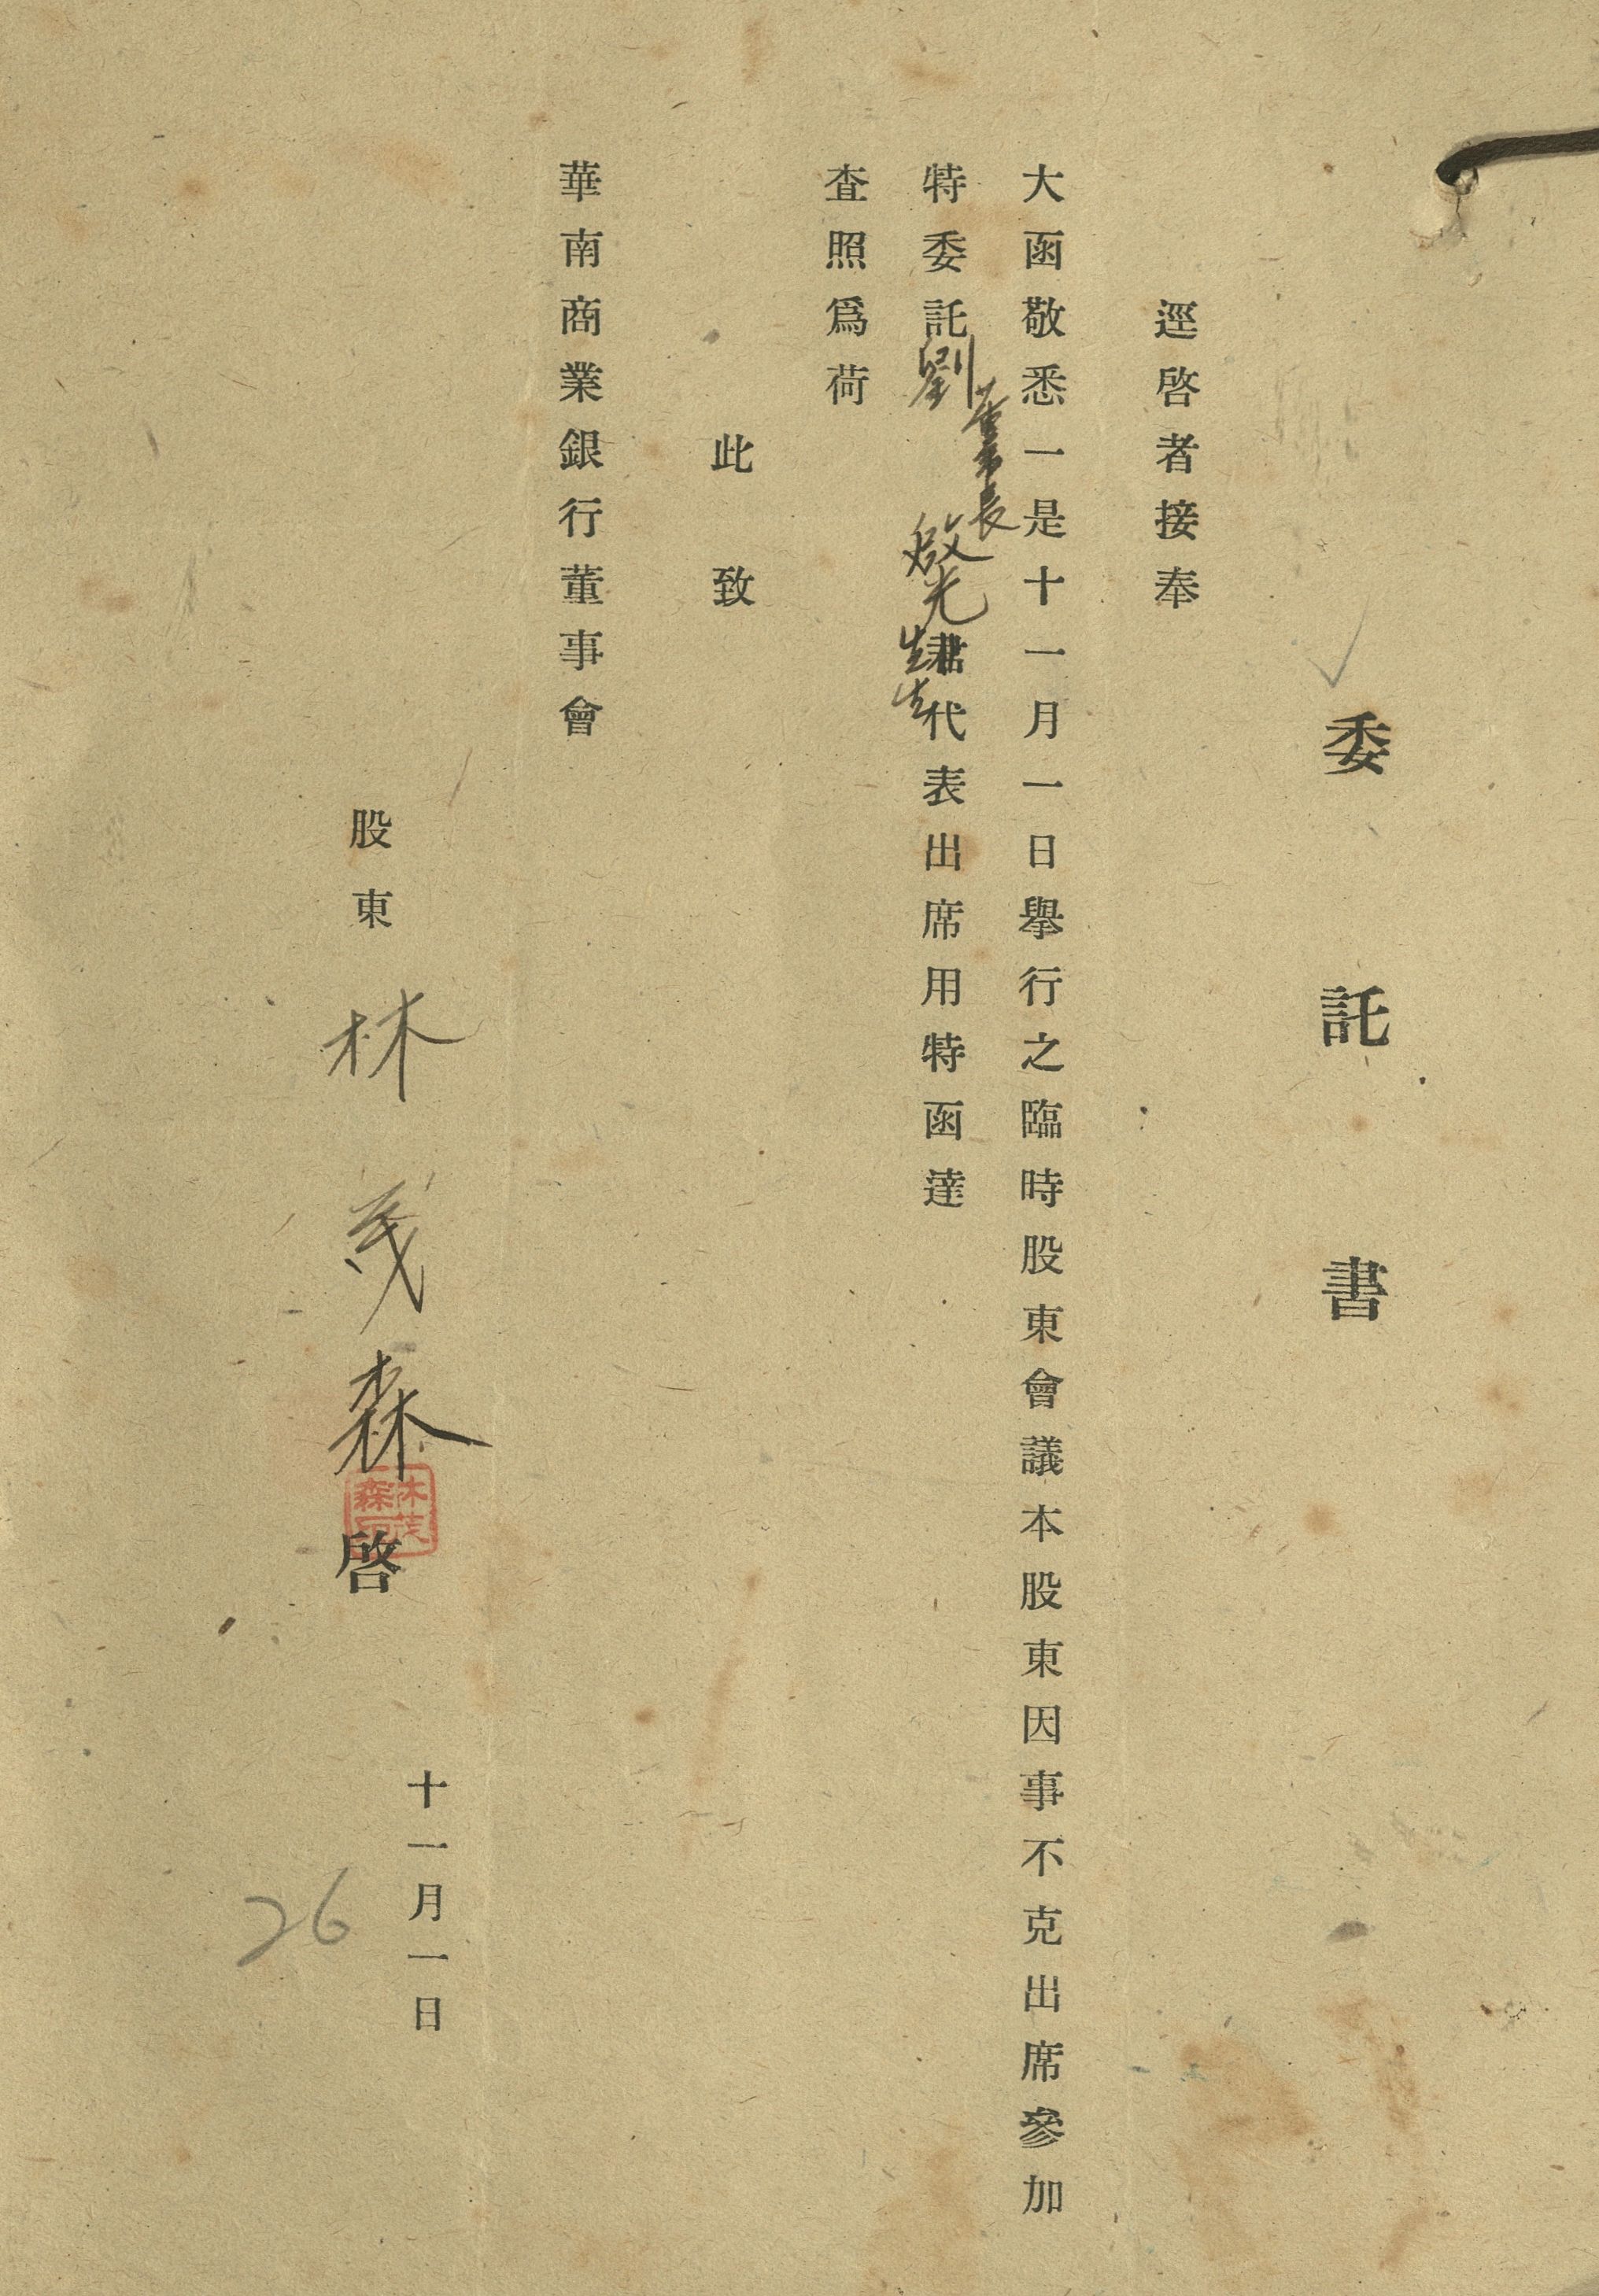 委託書
逕啓者接奉
大函敬悉一是十一月一日舉行之臨時股東會議本股東因事不克出席參加
特委託劉啟光先生代表出席用特函達
董事長
查照爲荷
此致
華南商業銀行董事會
十一月一日
股東林茂森啓
林茂森印
26